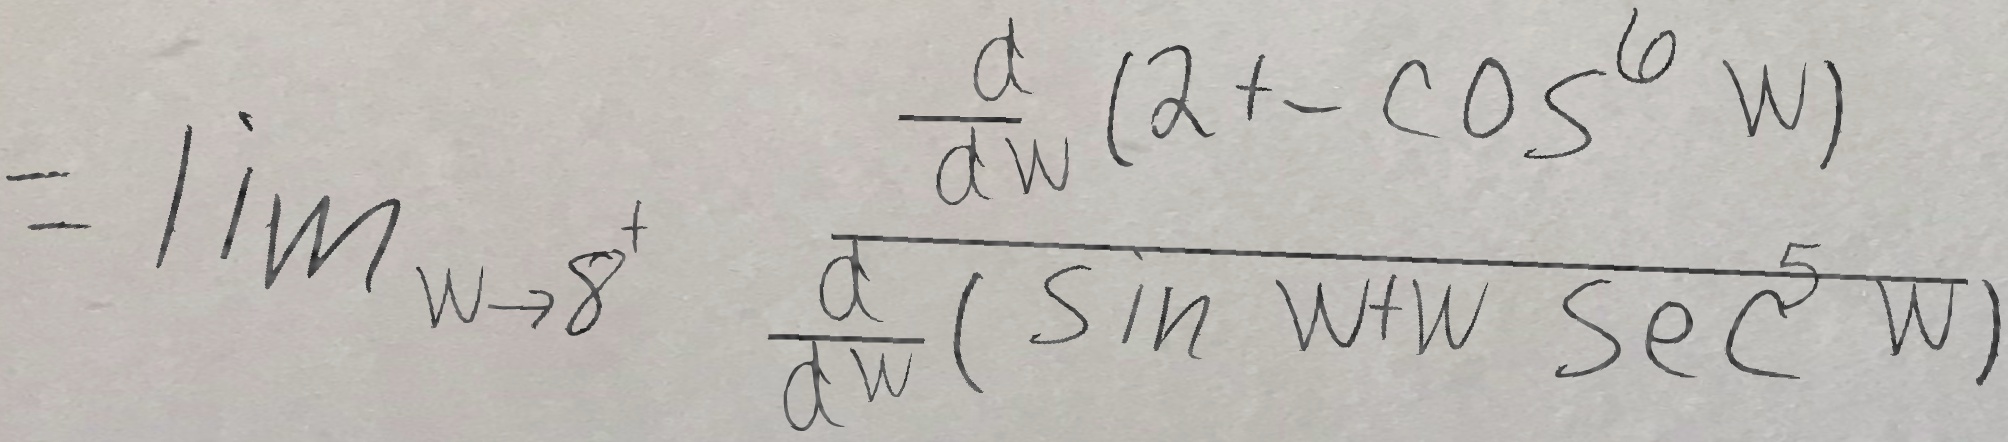 $$= \lim_{w \to 8^+} \frac{\frac{d}{dw}(2 + -\cos^6 w)}{\frac{d}{dw}(\sin w + w \sec^5 w)}$$